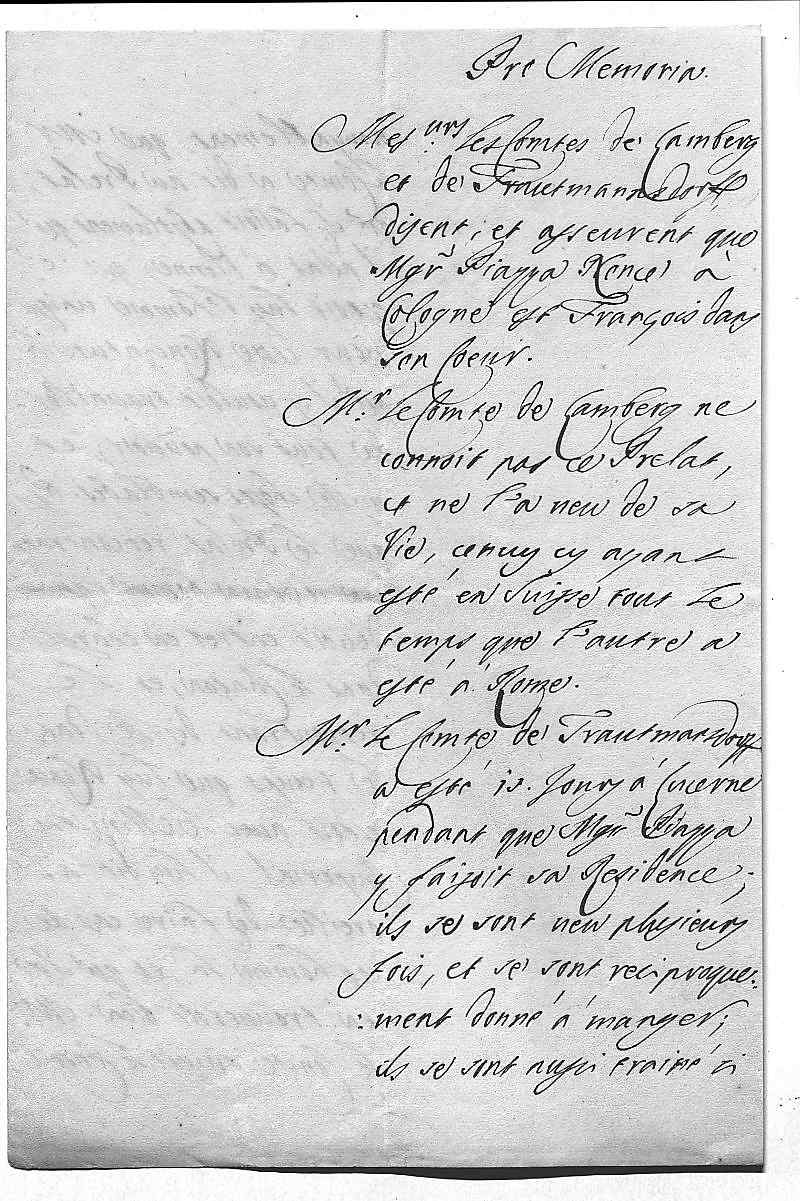 Pro Memoria.
Mes.urs les Comtes de Lamberg
et de Trautmannsdorff,
disent, et asseurent que
Mgr Piazza Nonce à
Cologne est François dans
son Coeur.
Mr. le Comte de Lamberg ne
connoit pas ce Prelat,
et ne l'a veu de sa
Vie, celuy cy ayant
esté en Suisse tout le
temps que l'autre a
esté à Rome.
Mr. le Comte de Trautmansdorff
a esté 15. Jours à Lucerne
pendant que Mgr Piazza
y faisoit sa Residence;
ils se sont veu plusieurs
fois, et se sont recipoque:
:ment donné à manger;
ils se sont aussi traité ci